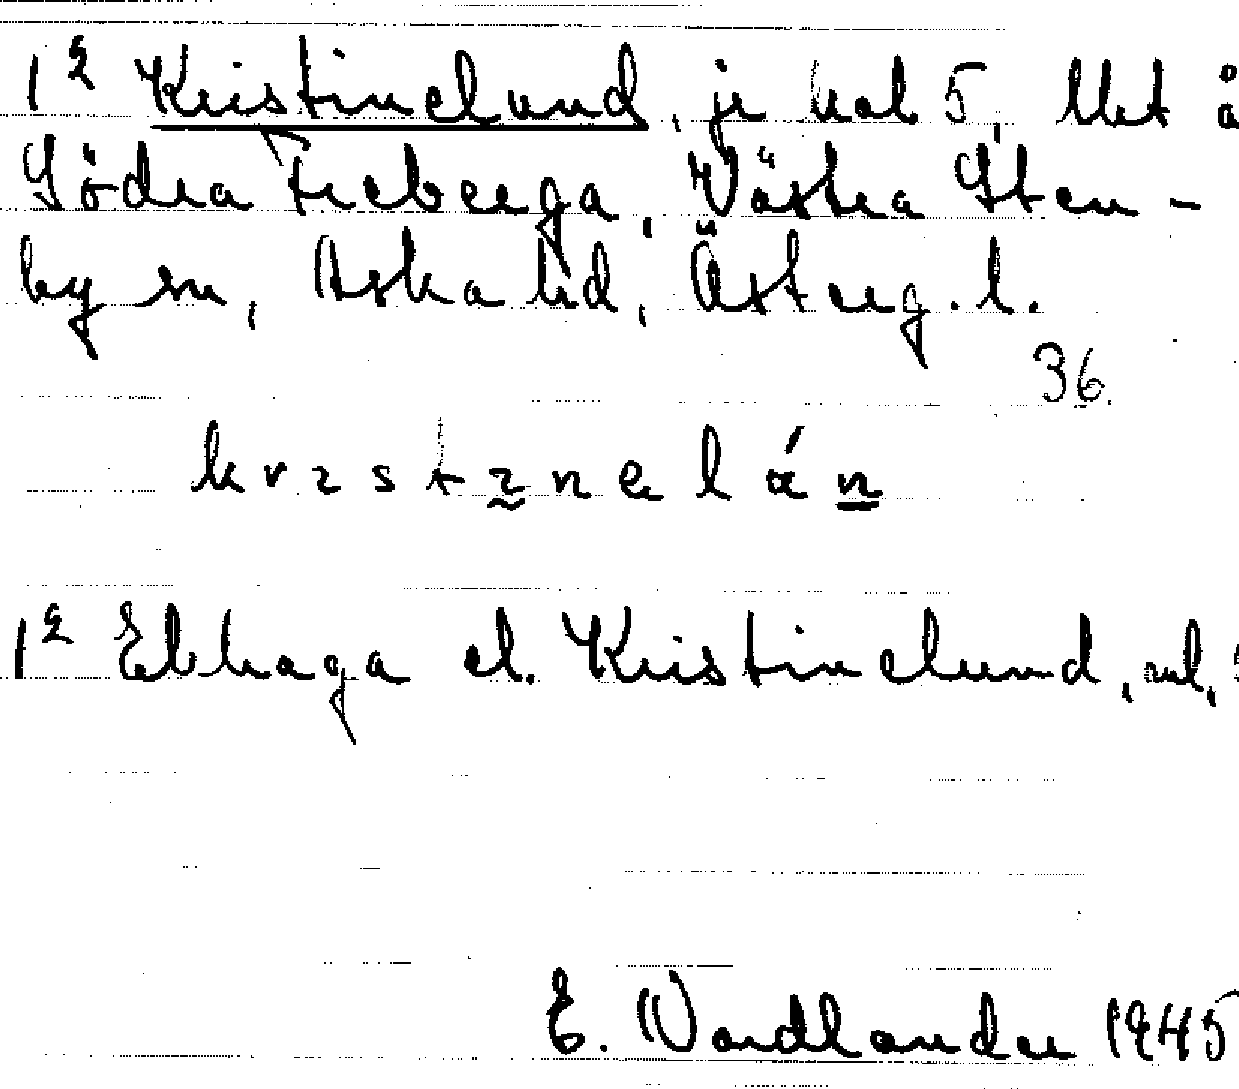 1 Kristinelund, je kol 5, Utet å
Södra Freberga, Västra Sten-
by sn, Aska hd, Österg. l.
36.
krɪstɪnelán
1 Ekhaga el. Kristinelund, avl,
E. Nordlander 1945